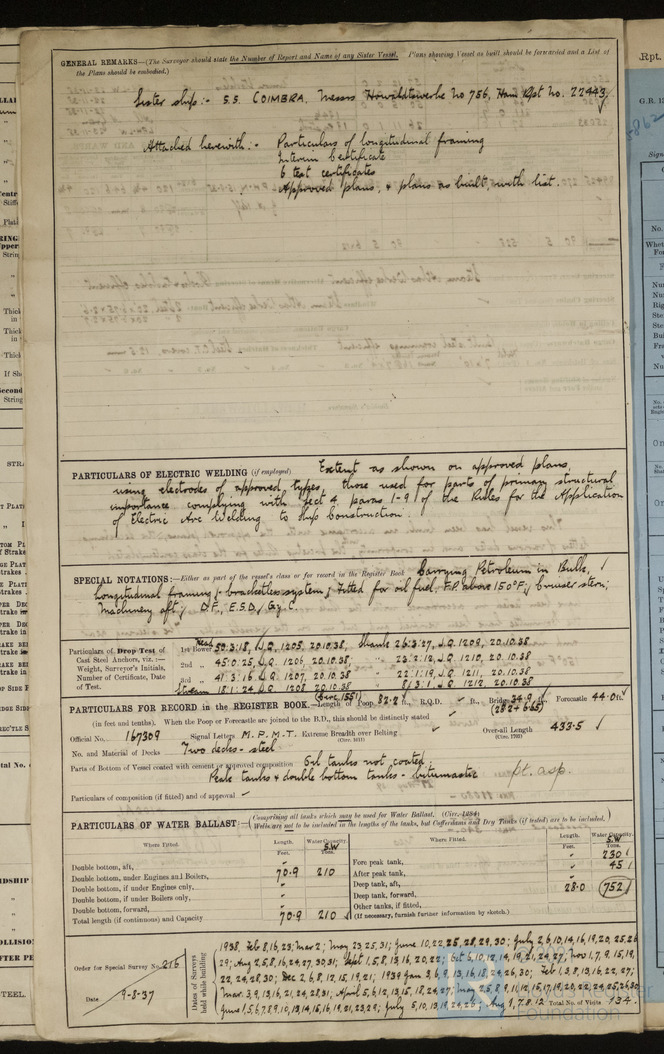 GENERAL REMARKS—(The Surveyor should state the Number of Report and Name of any Sister Vessel. Plans showing Vessel as built should be forwarded and a List of
the Plans should be embodied.)
Sister ship:- S.S. COIMBRA, Messrs Howaldtswerke No 756, Ham Rpt No. 22443
Attached herewith:- Particulars of longitudinal framing
Interim Certificate
6 test certificates
Approved plans, & plans as built, with list.
PARTICULARS OF ELECTRIC WELDING (if employed) Extent as shown on approved plans,
using electrodes of approved types, those used for parts of primary structural
importance complying with Sect 4 paras 1-9 of the Rules for the Application
of Electric Arc Welding to Ship Construction.
SPECIAL NOTATIONS:—Either as part of the vessel's class or for record in the Register Book Carrying Petroleum in Bulk,
Longitudinal framing & bracketless system; Fitted for oil fuel, F.P. above 150°F; Cruiser stern;
Machinery aft; D.F., E.S.D., Gy.C.
Particulars of Drop Test of
Cast Steel Anchors, viz.:—
Weight, Surveyor's Initials,
Number of Certificate, Date
of Test.
1st Bower Head 50.3.18, J.Q. 1205, 20.10.38, Shanks 26.3.27, J.Q. 1209, 20.10.38
2nd „ 45.0.25, J.Q. 1206, 20.10.38, „ 23.2.12, J.Q. 1210, 20.10.38
3rd „ 41.3.16, J.Q. 1207, 20.10.38 „ 22.1.19, J.Q. 1211, 20.10.38
Stream 18.1.24, J.Q. 1208 20.10.38 „ 8.3.1, J.Q. 1212, 20.10.38
PARTICULARS FOR RECORD in the REGISTER BOOK.—Length of Poop 82.2 ft., R.Q.D. ft., Bridge 34.9 ft., Forecastle 44.0 ft.
(in feet and tenths). When the Poop or Forecastle are joined to the B.D., this should be distinctly stated
Official No. 167309 Signal Letters M.P.M.T. Extreme Breadth over Belting Over-all Length 433.5
No. and Material of Decks Two decks - steel
Parts of Bottom of Vessel coated with cement or approved composition Oil tanks not coated.
Peak tanks & double bottom tanks - bitumastic pt. asp.
Particulars of composition (if fitted) and of approval
PARTICULARS OF WATER BALLAST:—(Comprising all tanks which may be used for Water Ballast, (Circ. 1284)
Wells are not to be included in the lengths of the tanks, but Cofferdams and Dry Tanks (if tested) are to be included.)
Where Fitted. Length. Water Capacity. Where Fitted. Length. Water Capacity.
Feet. S.W Tons. Feet. S.W Tons.
Double bottom, aft, Fore peak tank, 230
Double bottom, under Engines and Boilers, 70.9 210 After peak tank, 45
Double bottom, if under Engines only, Deep tank, aft, 28.0 752
Double bottom, if under Boilers only, Deep tank, forward,
Double bottom, forward, Other tanks, if fitted,
Total length (if continuous) and Capacity 70.9 210 (If necessary, furnish further information by sketch.)
Order for Special Survey No. 216
Date 9-8-37
Dates of Surveys held while building
1938. Feb 8,16,23; Mar 2; May 23,25,31; June 10,22,25,28,29,30; July 2,6,10,14,16,19,20,25,26
29; Aug 2,5,8,16,24,27,30,31; Sept 1,5,8,13,16,20,22; Oct 6,10,12,14,19,21,24,27; Nov 1,7,9,15,19,
22,24,28,30; Dec 2,6,8,12,15,19,21; 1939 Jan 3,6,9,13,16,18,24,26,30; Feb 1,3,8,13,16,22,27;
Mar. 3,9,13,16,21,24,28,31; April 5,6,12,13,15,18,24,27; May 2,5,8,9,11,12,15,17,19,20,22,24,25,26,30
June 1,5,6,7,8,9,10,13,14,15,16,19,21,23,29; July 5,10,13,19,24,26; Aug 1,7,8,12 Total No. of Visits 134.
Foundation
Rpt.